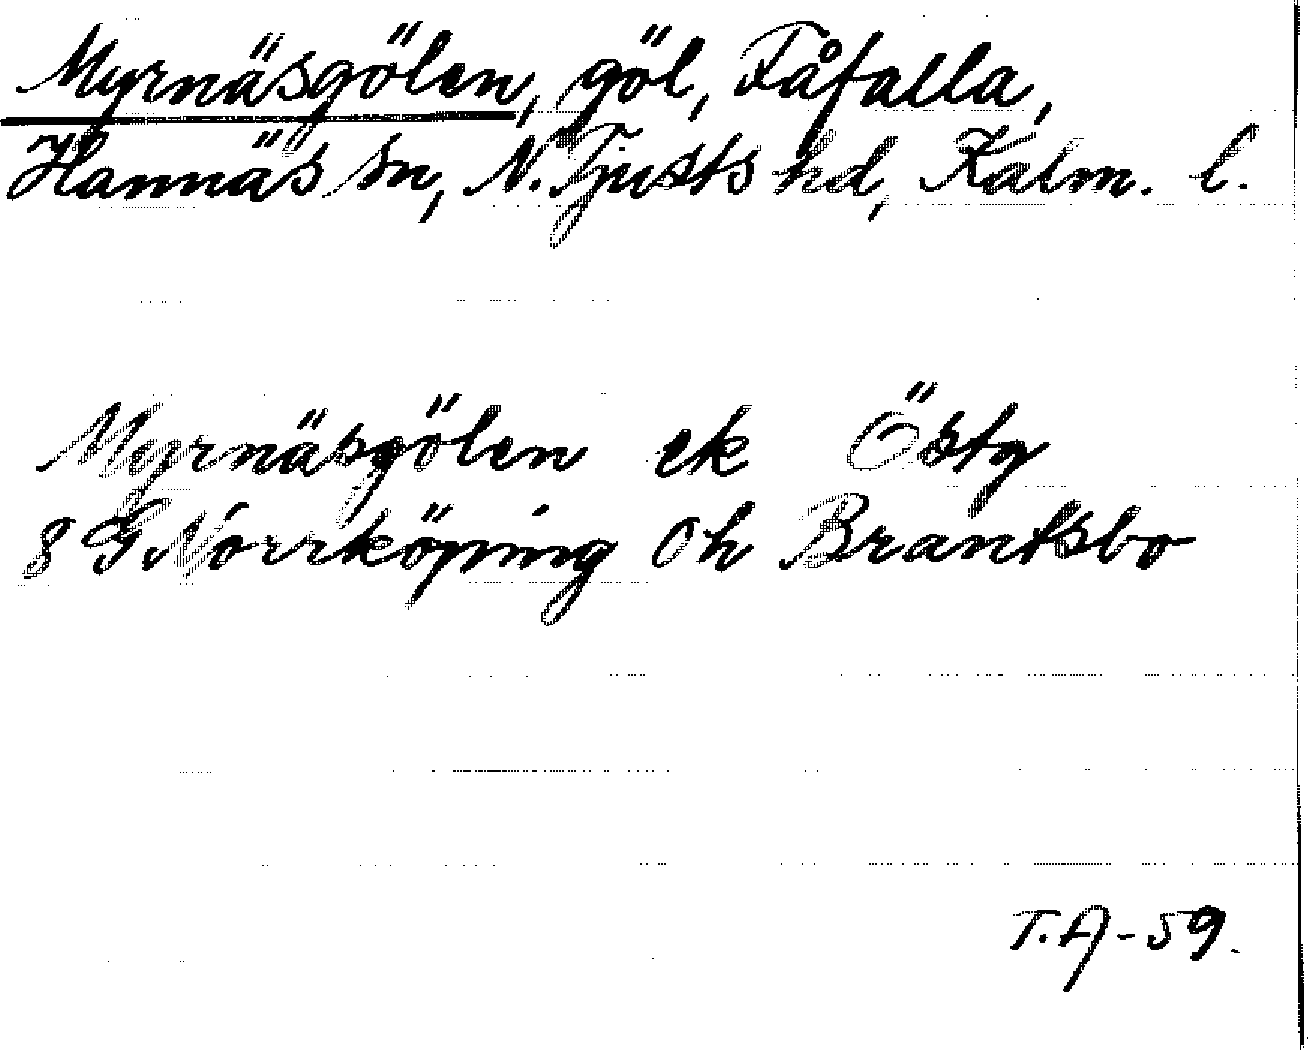 Myrnäsgölen, göl, Fåfalla,
Hannäs sn, N. Tjusts hd, Kalm. l.
Myrnäsgölen ek Östg
8 G Norrköping Oh Brantsbo
T.A-59.